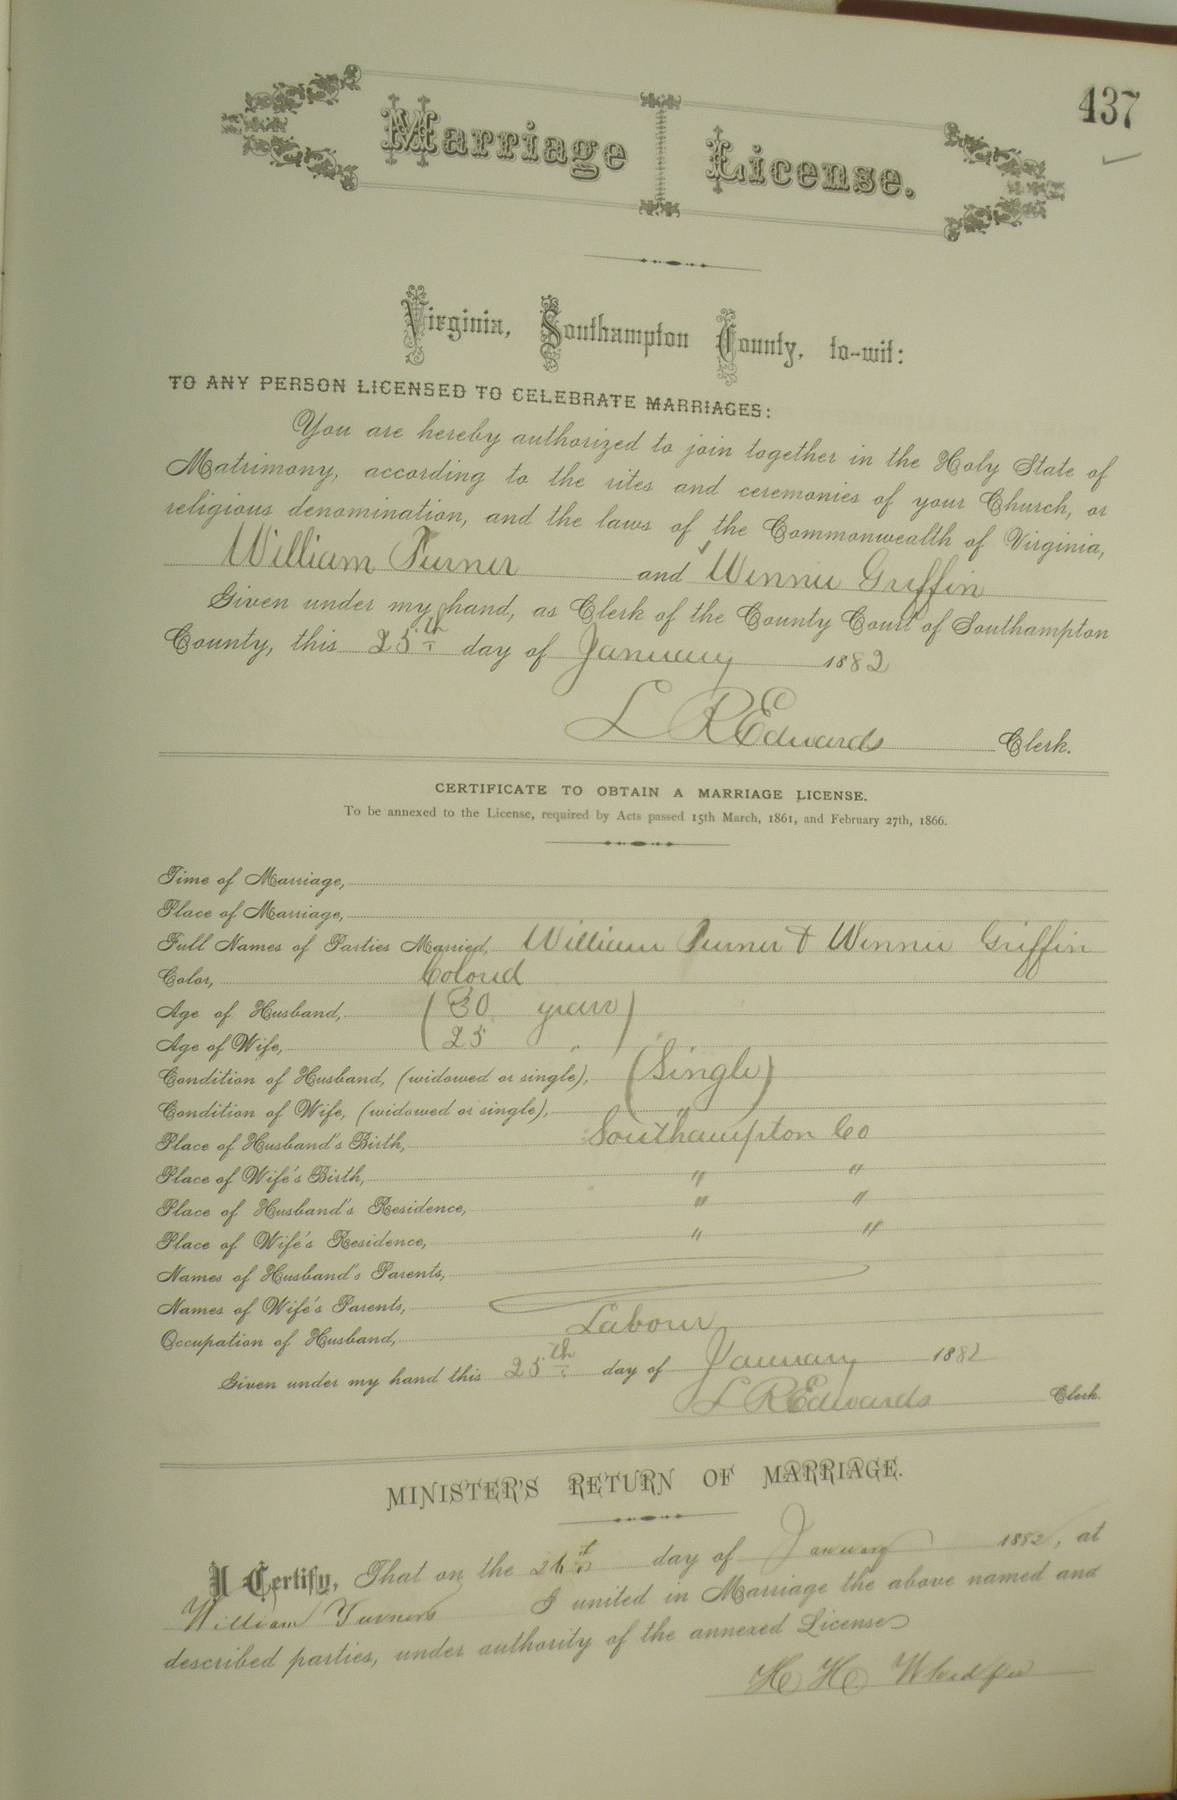 437
Marriage License.
Virginia, Southampton County, to-wit:
TO ANY PERSON LICENSED TO CELEBRATE MARRIAGES:
You are hereby authorized to join together in the Holy State of
Matrimony, according to the rites and ceremonies of your Church, or
religious denomination, and the laws of the Commonwealth of Virginia,
William Turner and Winnie Griffin
Given under my hand, as Clerk of the County Court of Southampton
County, this 25th day of January 1882
L R Edwards Clerk.
CERTIFICATE TO OBTAIN A MARRIAGE LICENSE.
To be annexed to the License, required by Acts passed 15th March, 1861, and February 27th, 1866.
Time of Marriage,
Place of Marriage,
Full Names of Parties Married, William Turner & Winnie Griffin
Color, Colored
Age of Husband, 30 years
Age of Wife, 25 "
Condition of Husband, (widowed or single), (Single)
Condition of Wife, (widowed or single), "
Place of Husband's Birth, Southampton Co
Place of Wife's Birth, " "
Place of Husband's Residence, " "
Place of Wife's Residence, " "
Names of Husband's Parents,
Names of Wife's Parents,
Occupation of Husband, Labour
Given under my hand this 25th day of January 1882
L R Edwards Clerk.
MINISTER'S RETURN OF MARRIAGE.
I Certify, That on the 26th day of January 1882, at
William Turners I united in Marriage the above named and
described parties, under authority of the annexed License
H H